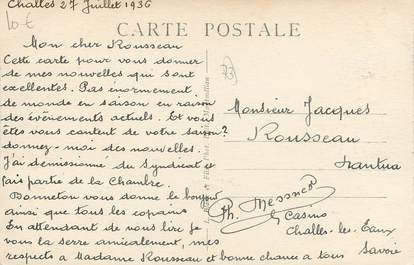 Challes 27 Juillet 1936
10€
CARTE POSTALE
Mon cher Rousseau
Cette carte pour vous donner
de mes nouvelles qui sont
excellentes. Pas énormément
de monde en saison en raison
des évènements actuels. Et vous
êtes vous content de votre saison?
donnez-moi des nouvelles.
J'ai démissionné du Syndicat et
fais partie de la Chambre.
Donneton vous donne le bonjour
ainsi que tous les copains
En attendant de vous lire je
vous la serre amicalement, mes
respects à Madame Rousseau et bonne chance à tous
Monsieur Jacques
Rousseau
Nantua
Ph. Messner
Casino
Challes-les-Eaux
Savoie